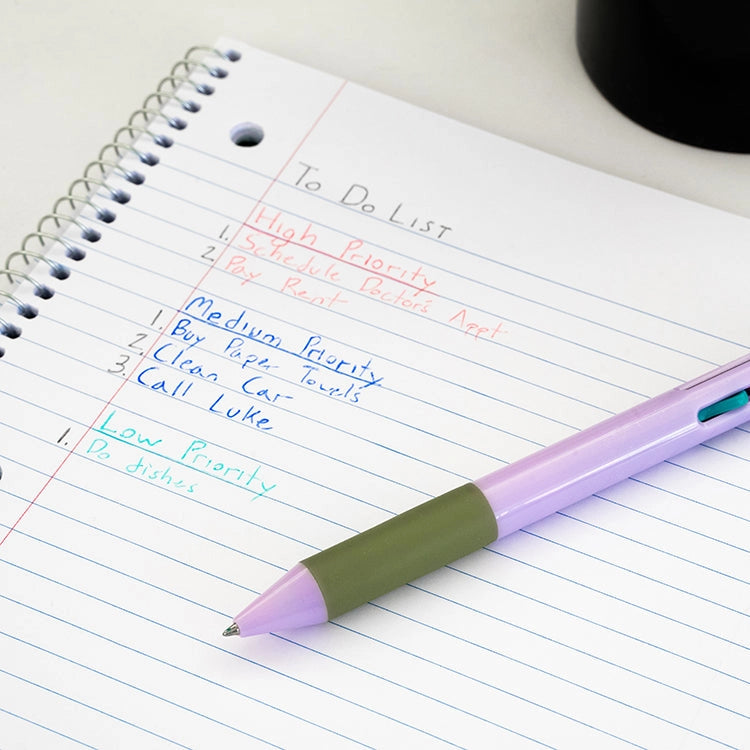 To Do List
High Priority
1. Schedule Doctor's Appt
2. Pay Rent
Medium Priority
1. Buy Paper Towels
2. Clean Car
3. Call Luke
Low Priority
1. Do dishes